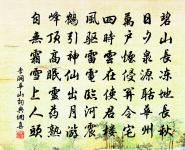 碧山長凍地長秋
日夕泉源聒華州
萬戶煙侵關令宅
四時雲在使君樓
風驅雷電臨河震
鶴引神仙出月遊
峰頂高眠靈藥熟
自無霜雪上人頭
李洞華山詞典網